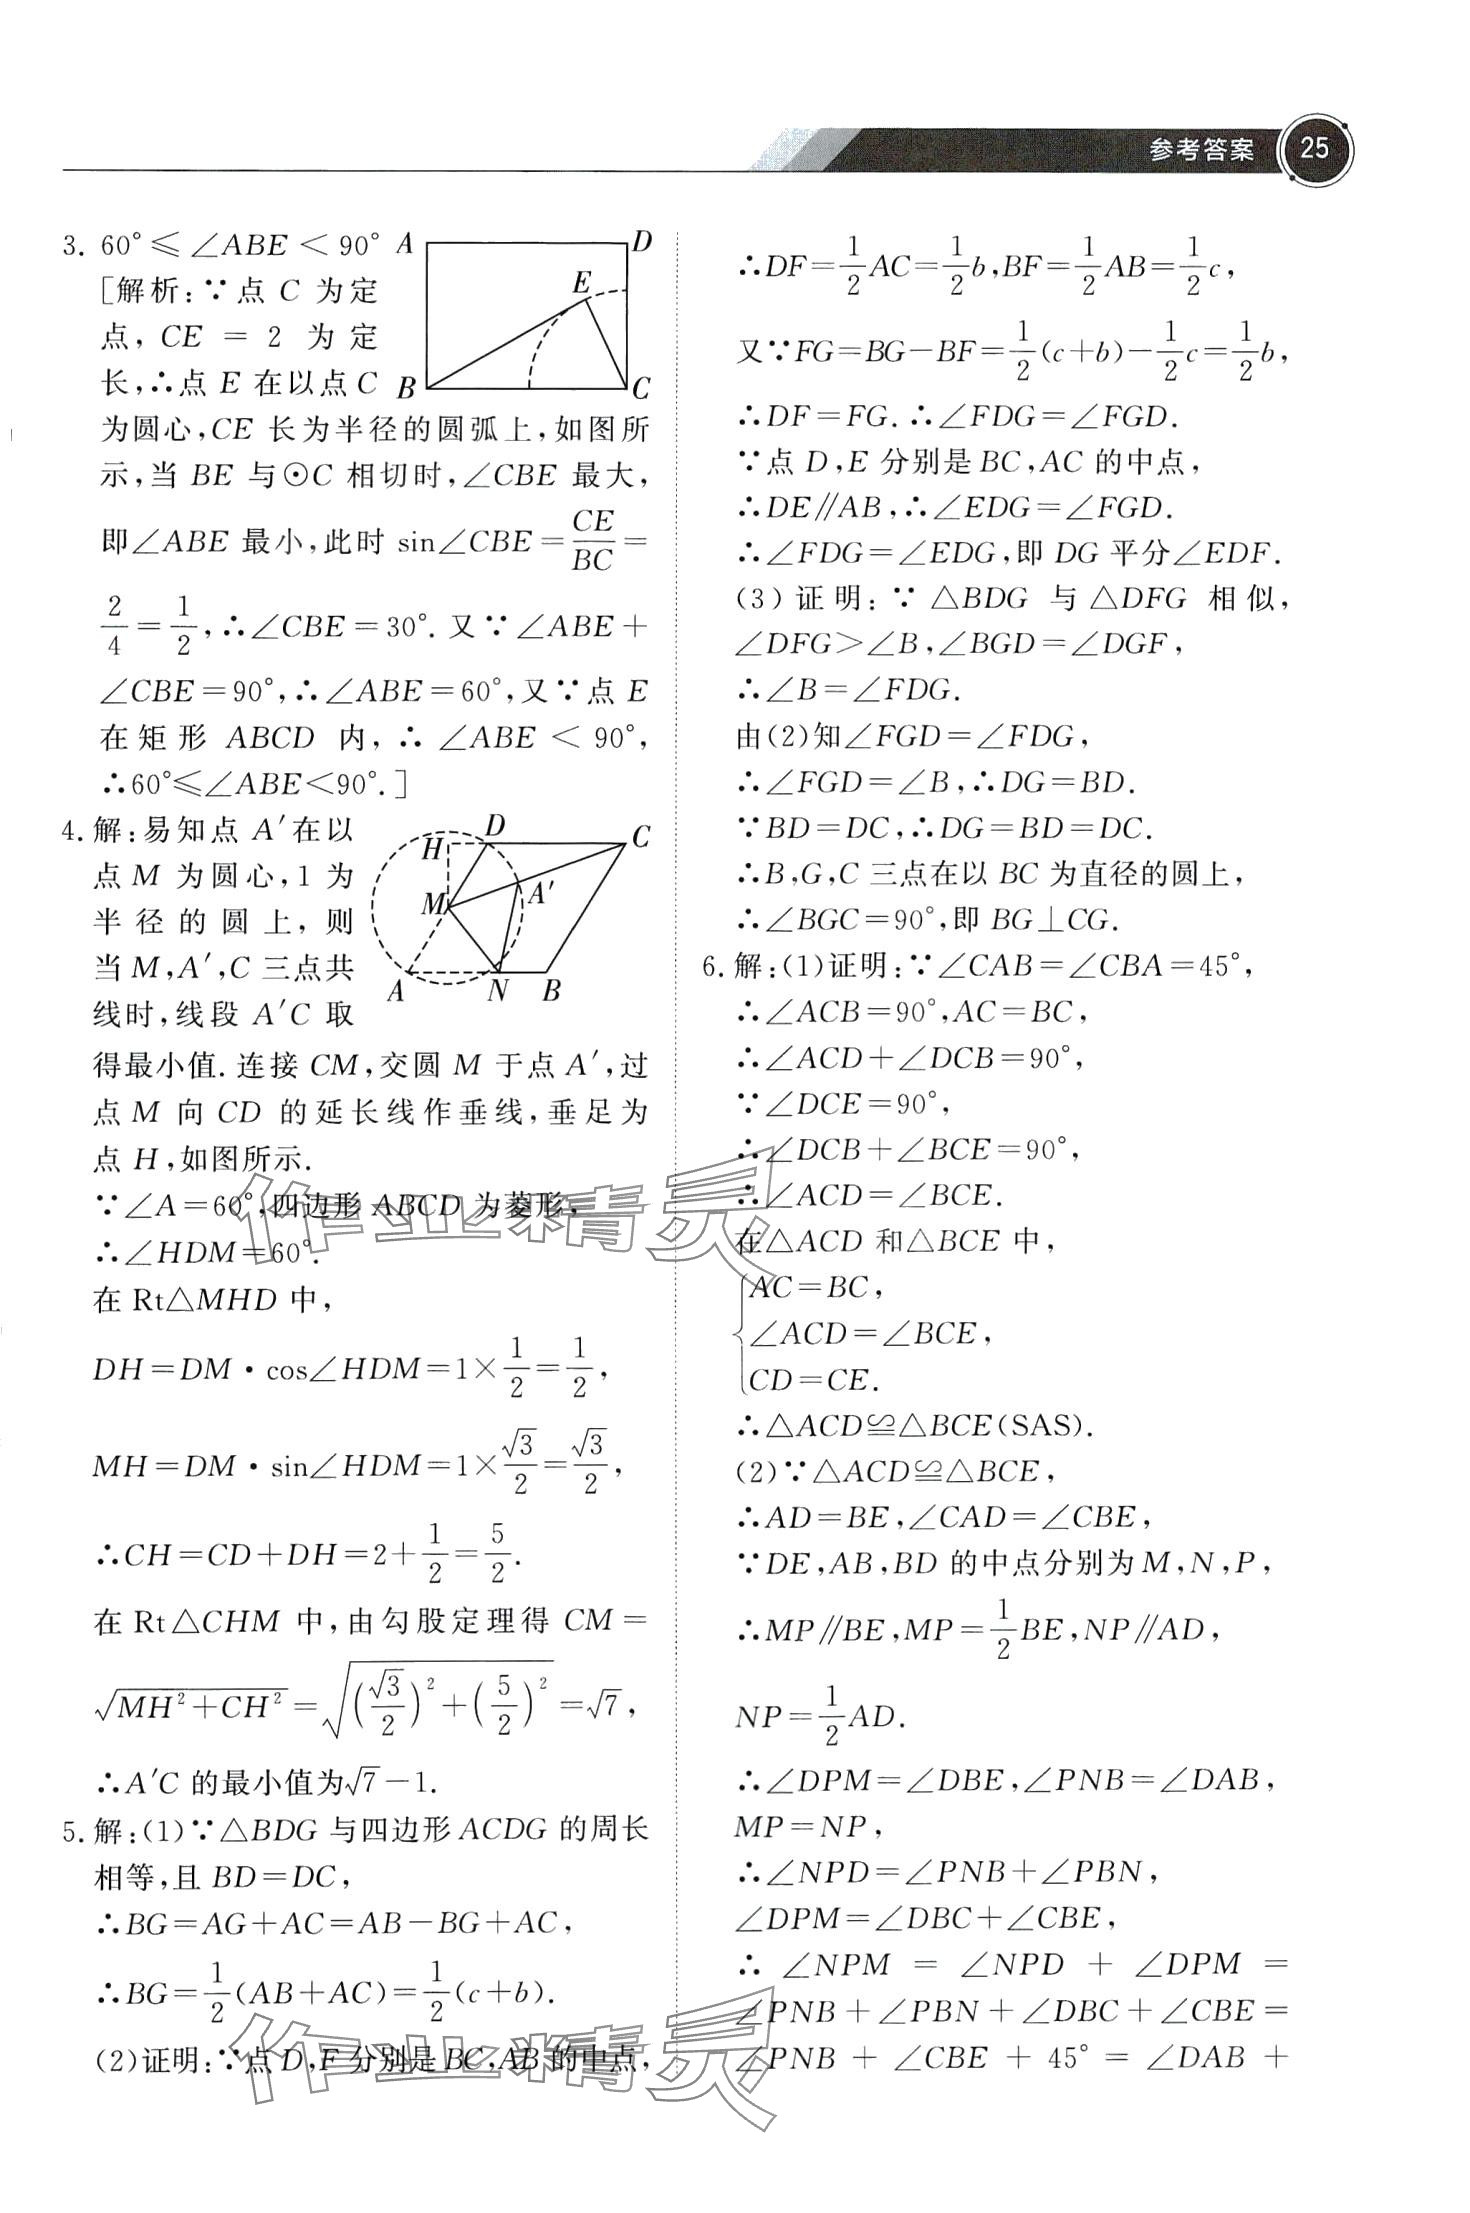 参考答案 25
3. 60°≤∠ABE<90°
[解析:∵点 C 为定
点, CE = 2 为定
长,∴点 E 在以点 C
为圆心,CE 长为半径的圆弧上,如图所
示,当 BE 与⊙C 相切时,∠CBE 最大,
即∠ABE 最小,此时 sin∠CBE=CE/BC=
2/4=1/2,∴∠CBE=30°. 又∵∠ABE+
∠CBE=90°,∴∠ABE=60°,又∵点 E
在矩形 ABCD 内,∴∠ABE<90°,
∴60°≤∠ABE<90°.]
A D E B C
4. 解:易知点 A′在以
点 M 为圆心,1 为
半径的圆上,则
当 M,A′,C 三点共
线时,线段 A′C 取
得最小值. 连接 CM,交圆 M 于点 A′,过
点 M 向 CD 的延长线作垂线,垂足为
点 H,如图所示.
H D C M A′ A N B
∵∠A=60°,四边形 ABCD 为菱形,
∴∠HDM=60°.
在 Rt△MHD 中,
DH=DM·cos∠HDM=1×1/2=1/2,
MH=DM·sin∠HDM=1×√3/2=√3/2,
∴CH=CD+DH=2+1/2=5/2.
在 Rt△CHM 中,由勾股定理得 CM=
√(MH²+CH²)=√((√3/2)²+(5/2)²)=√7,
∴A′C 的最小值为√7-1.
5. 解:(1)∵△BDG 与四边形 ACDG 的周长
相等,且 BD=DC,
∴BG=AG+AC=AB-BG+AC,
∴BG=1/2(AB+AC)=1/2(c+b).
(2)证明:∵点 D,F 分别是 BC,AB 的中点,
∴DF=1/2AC=1/2b,BF=1/2AB=1/2c,
又∵FG=BG-BF=1/2(c+b)-1/2c=1/2b,
∴DF=FG. ∴∠FDG=∠FGD.
∵点 D,E 分别是 BC,AC 的中点,
∴DE∥AB,∴∠EDG=∠FGD.
∴∠FDG=∠EDG,即 DG 平分∠EDF.
(3)证明:∵△BDG 与△DFG 相似,
∠DFG>∠B,∠BGD=∠DGF,
∴∠B=∠FDG.
由(2)知∠FGD=∠FDG,
∴∠FGD=∠B,∴DG=BD.
∵BD=DC,∴DG=BD=DC.
∴B,G,C 三点在以 BC 为直径的圆上,
∴∠BGC=90°,即 BG⊥CG.
6. 解:(1)证明:∵∠CAB=∠CBA=45°,
∴∠ACB=90°,AC=BC,
∴∠ACD+∠DCB=90°,
∵∠DCE=90°,
∴∠DCB+∠BCE=90°,
∴∠ACD=∠BCE.
在△ACD 和△BCE 中,
AC=BC,
∠ACD=∠BCE,
CD=CE.
∴△ACD≌△BCE(SAS).
(2)∵△ACD≌△BCE,
∴AD=BE,∠CAD=∠CBE,
∵DE,AB,BD 的中点分别为 M,N,P,
∴MP∥BE,MP=1/2BE,NP∥AD,
NP=1/2AD.
∴∠DPM=∠DBE,∠PNB=∠DAB,
MP=NP,
∴∠NPD=∠PNB+∠PBN,
∠DPM=∠DBC+∠CBE,
∴∠NPM=∠NPD+∠DPM=
∠PNB+∠PBN+∠DBC+∠CBE=
∠PNB+∠CBE+45°=∠DAB+
作业精灵
作业精灵